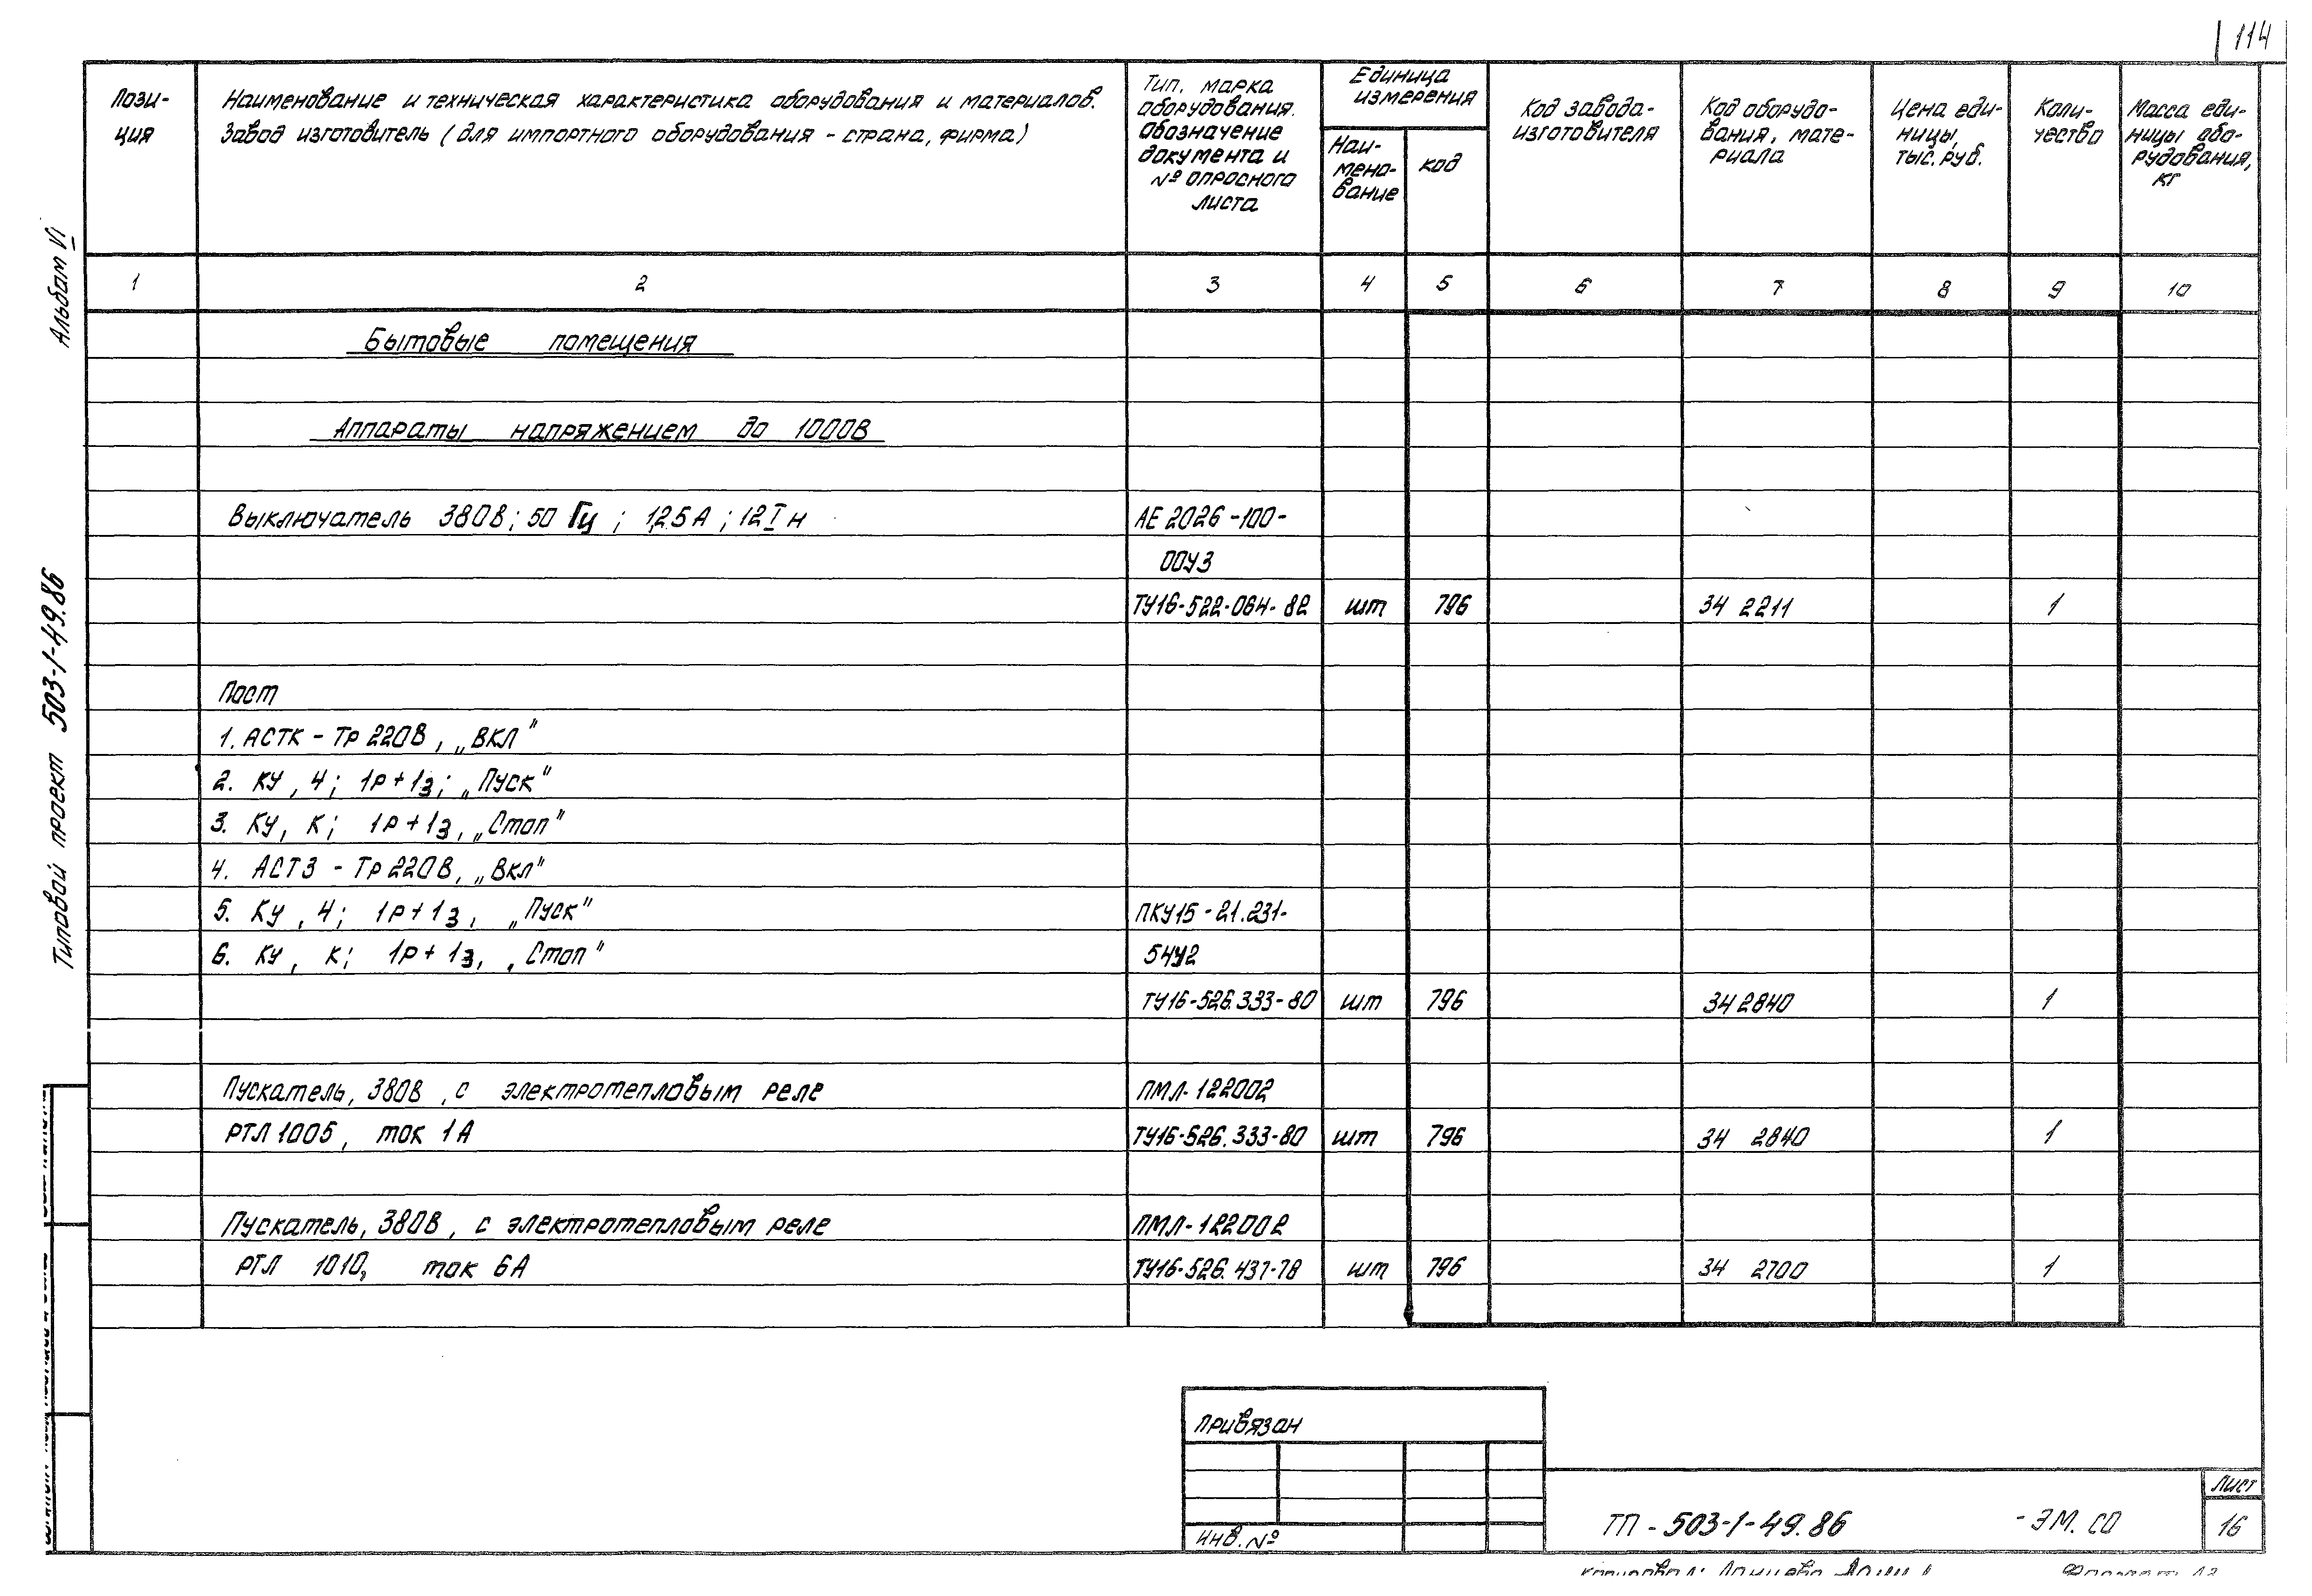 114
Пози-
ция
Наименование и техническая характеристика оборудования и материалов.
Завод изготовитель (для импортного оборудования - страна, фирма)
Тип. марка
оборудования.
Обозначение
документа и
№ опросного
листа
Единица
измерения
Наи-
мено-
вание
код
Код завода-
изготовителя
Код оборудо-
вания, мате-
риала
Цена еди-
ницы,
тыс. руб.
Коли-
чество
Масса еди-
ницы обо-
рудования,
кг
1 2 3 4 5 6 7 8 9 10
Бытовые помещения
Аппараты напряжением до 1000В
Выключатель 380В; 50 Гц; 1,25А; 12Iн АЕ 2026-100-
00У3
ТУ16-522-064-82 шт 796 34 2211 1
Пост
1. АСТК - Тр 220В, „ВКЛ"
2. КУ, Ч; 1р+1з; „Пуск"
3. КУ, К; 1р+1з, „Стоп"
4. АСТЗ - Тр 220В, „Вкл"
5. КУ, Ч; 1р+1з, „Пуск" ПКУ15-21.231-
6. КУ, К; 1р+1з, „Стоп" 54У2
ТУ16-526.333-80 шт 796 34 2840 1
Пускатель, 380В, с электротепловым реле ПМЛ-122002
РТЛ 1005, ток 1А ТУ16-526.333-80 шт 796 34 2840 1
Пускатель, 380В, с электротепловым реле ПМЛ-122002
РТЛ 1010, ток 6А ТУ16-526.437-78 шт 796 34 2700 1
Альбом VI
Типовой проект 503-1-49.86
Привязан
Инв. №
ТП - 503-1-49.86 -ЭМ.СО
Лист
16